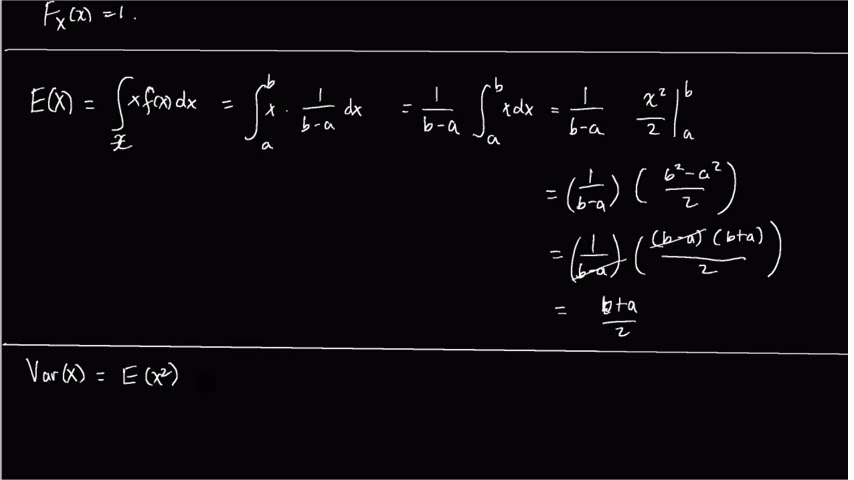 F_X(x) = 1.
E(X) = ∫_𝒳 x f(x) dx = ∫_a^b x · 1/(b-a) dx = 1/(b-a) ∫_a^b x dx = 1/(b-a) x²/2 |_a^b
= (1/(b-a)) ( (b²-a²)/2 )
= (1/(b-a)) ( (b-a)(b+a)/2 )
= (b+a)/2
Var(X) = E(X²)